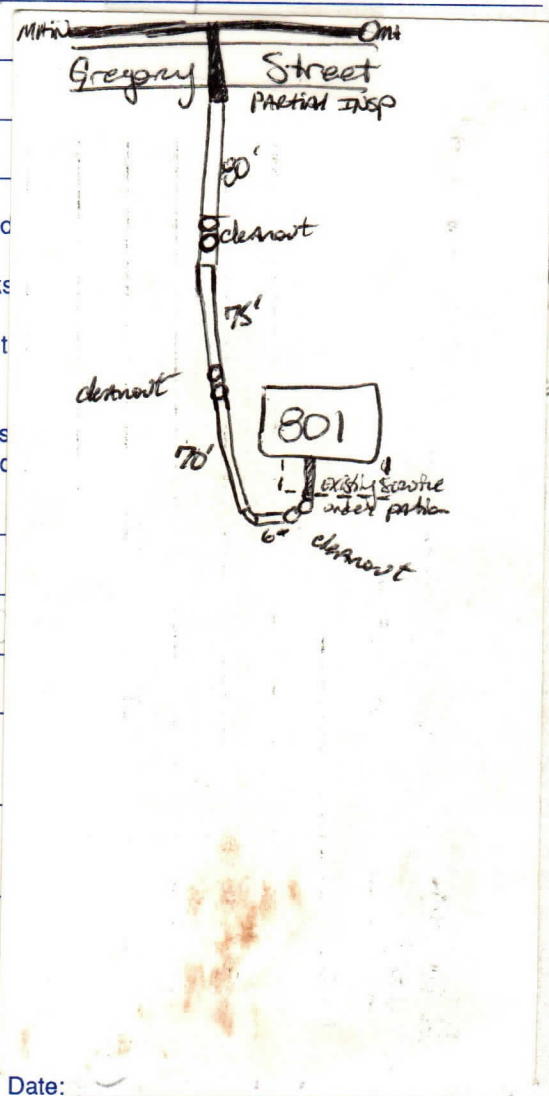 MAIN
Gregory Street
PARTIAL INSP
80'
cleanout
75'
cleanout
801
70'
existing service
under
6"
cleanout
Date: